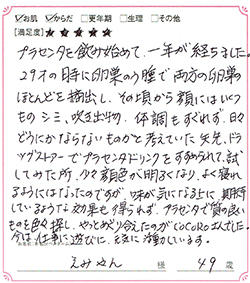 ☑お肌 ☑からだ □更年期 □生理 □その他
[満足度] ★★★★★
プラセンタを飲み始めて、一年が経ちました。
29才の時に卵巣のう腫で両方の卵巣
ほとんどを摘出し、その頃から顔にはいくつ
ものシミ、吹き出物、体調もすぐれず、日々
どうにかならないものかと考えていた矢先、ドラ
ッグストアーでプラセンタドリンクをすすめられて、試
してみた所、少々顔色が明るくなり、よく寝れ
るようにはなったのですが、味が気になる上に、期待
しているような効果も得られず、プラセンタで質の良い
ものを色々探し、やっとめぐり会えたのがCoCoRoさんでした。
今は、仕事に、遊びに、と共に活動しています。
えみやん 様 49 歳